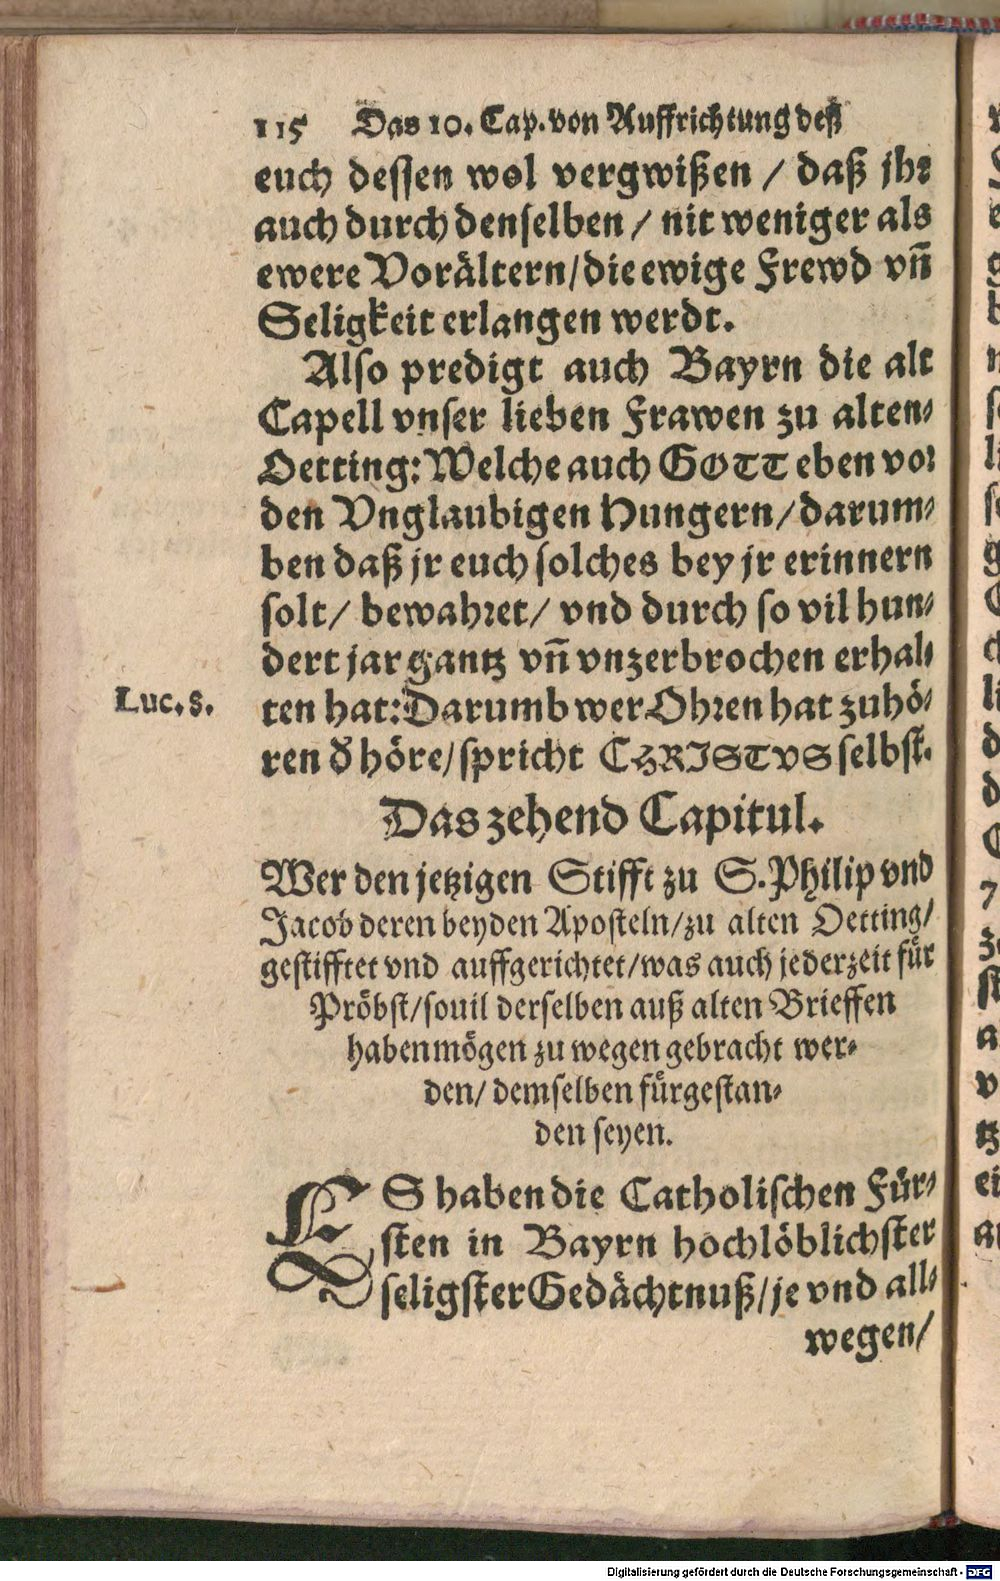 115 Das 10. Cap. von Auffrichtung deß
euch dessen wol vergwißen / daß jhr
auch durch denselben / nit weniger als
ewere Vorältern/die ewige Frewd vñ
Seligkeit erlangen werdt.
Also predigt auch Bayrn die alt
Capell vnser lieben Frawen zu alten-
Oetting: Welche auch GOTT eben vor
den Vnglaubigen Hungern/darum-
ben daß jr euch solches bey jr erinnern
solt/ bewahret/ vnd durch so vil hun-
dert jar gantz vñ vnzerbrochen erhal-
Luc. 8.
ten hat: Darumb wer Ohren hat zuhö-
ren d̕ höre/spricht CHRISTVS selbst.
Das zehend Capitul.
Wer den jetzigen Stifft zu S. Philip vnd
Jacob deren beyden Aposteln/zu alten Oetting/
gestifftet vnd auffgerichtet/was auch jederzeit für
Pröbst/souil derselben auß alten Brieffen
haben mögen zu wegen gebracht wer-
den/ demselben fürgestan-
den seyen.
ES haben die Catholischen Für-
sten in Bayrn hochlöblichster
seligster Gedächtnuß/je vnd all-
wegen/
Digitalisierung gefördert durch die Deutsche Forschungsgemeinschaft - DFG